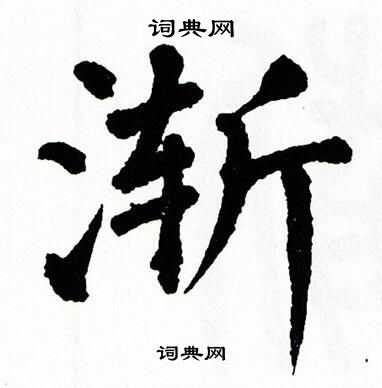 词典网
漸
词典网